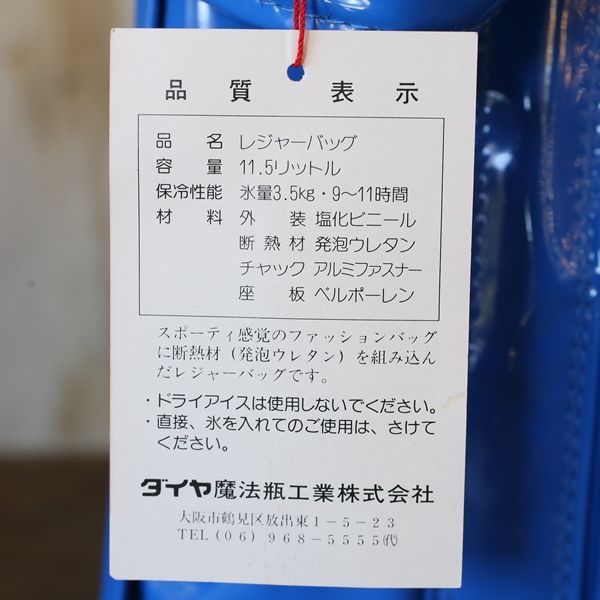 品質表示
品名 レジャーバッグ
容量 11.5リットル
保冷性能 氷量3.5kg・9〜11時間
材料 外装 塩化ビニール
断熱材 発泡ウレタン
チャック アルミファスナー
座板 ベルポーレン
スポーティ感覚のファッションバッグ
に断熱材(発泡ウレタン)を組み込ん
だレジャーバッグです。
・ドライアイスは使用しないでください。
・直接、氷を入れてのご使用は、さけて
ください。
ダイヤ魔法瓶工業株式会社
大阪市鶴見区放出東1−5−23
TEL(06)968−5555㈹